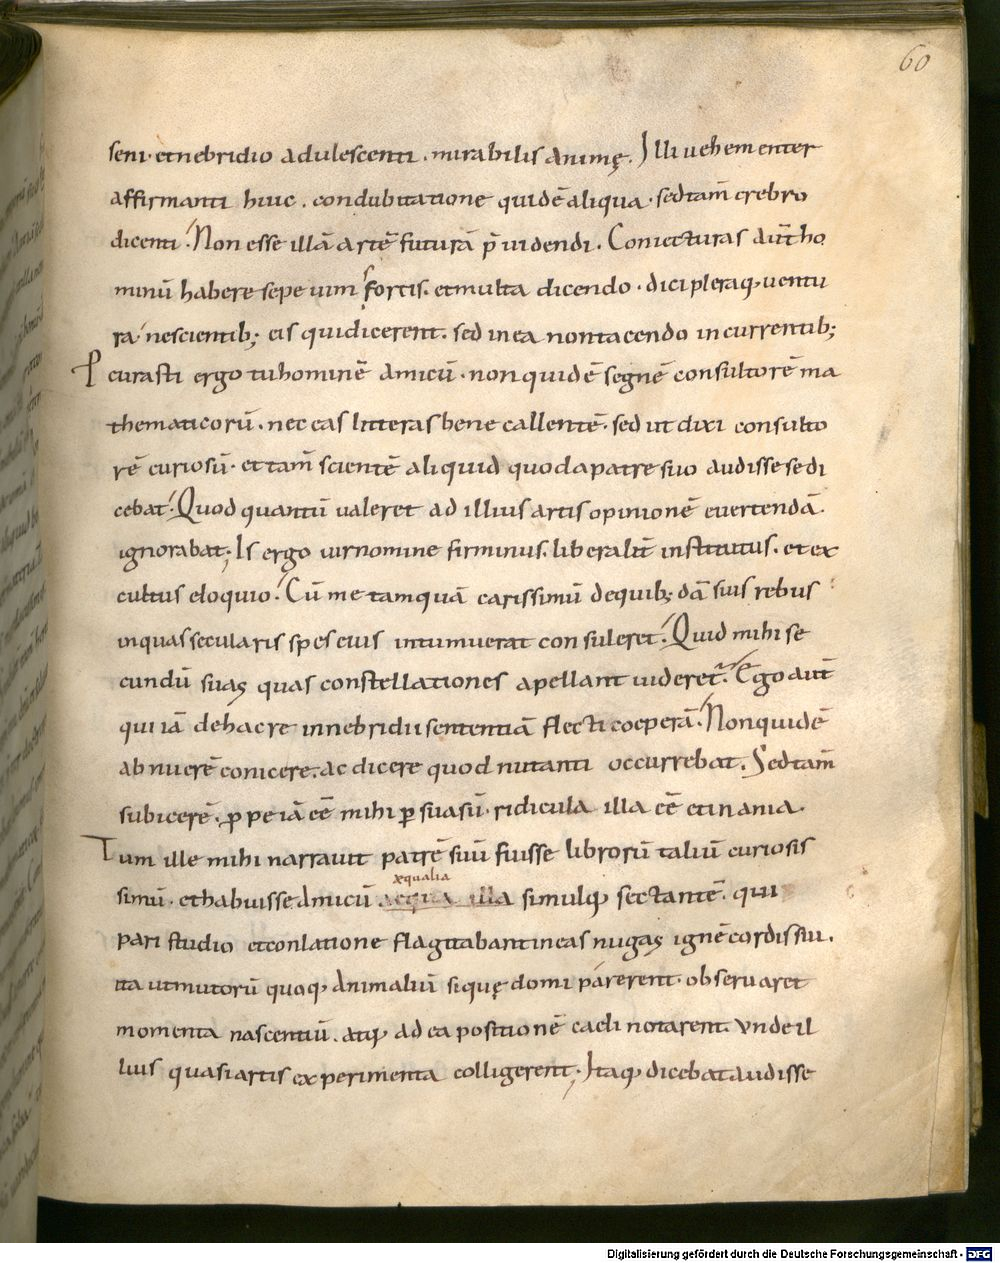 60
seni· etnebridio adulescenti . mirabilis animę. Illi uehementer
affirmanti huic . condubitatione quidē aliqua· sedtam̄ crebro
dicenti. Non esse illā artē futurā p̄uidendi. Coniecturas aūt ho
minū habere sepe uim fortis. etmulta dicendo · dici pleraq; uentu
ra· nescientib; eis quidicerent. sed inea nontacendo incurrentib;
P curasti ergo tuhominē amicū · nonquidē segnē consultorē ma
thematicorū . nec eas litteras bene callentē. sed ut dixi consulto
rē curiosū· et tam̄ scientē aliquid quodapatre suo audisse se di
cebat. Quod quantū ualeret ad illius artis opinionē euertendā.
ignorabat; Is ergo uir nomine firminus. liberalit̄ institutus. et ex
cultus eloquio. Cū me tamquā carissimū dequib;dā suis rebus
inquas secularis spes eius intumuerat consuleret. Quid mihi se
cundū suas quas constellationes apellant uideret. Ego aut̄
qui iā dehacre innebridii sententiā flecti coeperā. Nonquidē
abnuerē conicere. ac dicere quod nutanti occurrebat. Sedtam̄
subicerē. ꝓpe iā eē mihi ꝑsuasū· ridicula illa eē etinania.
Tum ille mihi narrauit patrē suū fuisse librorū taliū curiosis
æqualia
simū· ethabuisse amicū .aequa illa simulq; sectantē. qui
pari studio etconlatione flagitabantineas nugas ignē cordis sui.
ita utmutorū quoq; animaliū siquę domi parerent· obseruaret
momenta nascentiū. atq; ad ea positionē caeli notarent. vnde il
lius quasiartis experimenta colligerent; Itaq; dicebataudisse
Digitalisierung gefördert durch die Deutsche Forschungsgemeinschaft - DFG